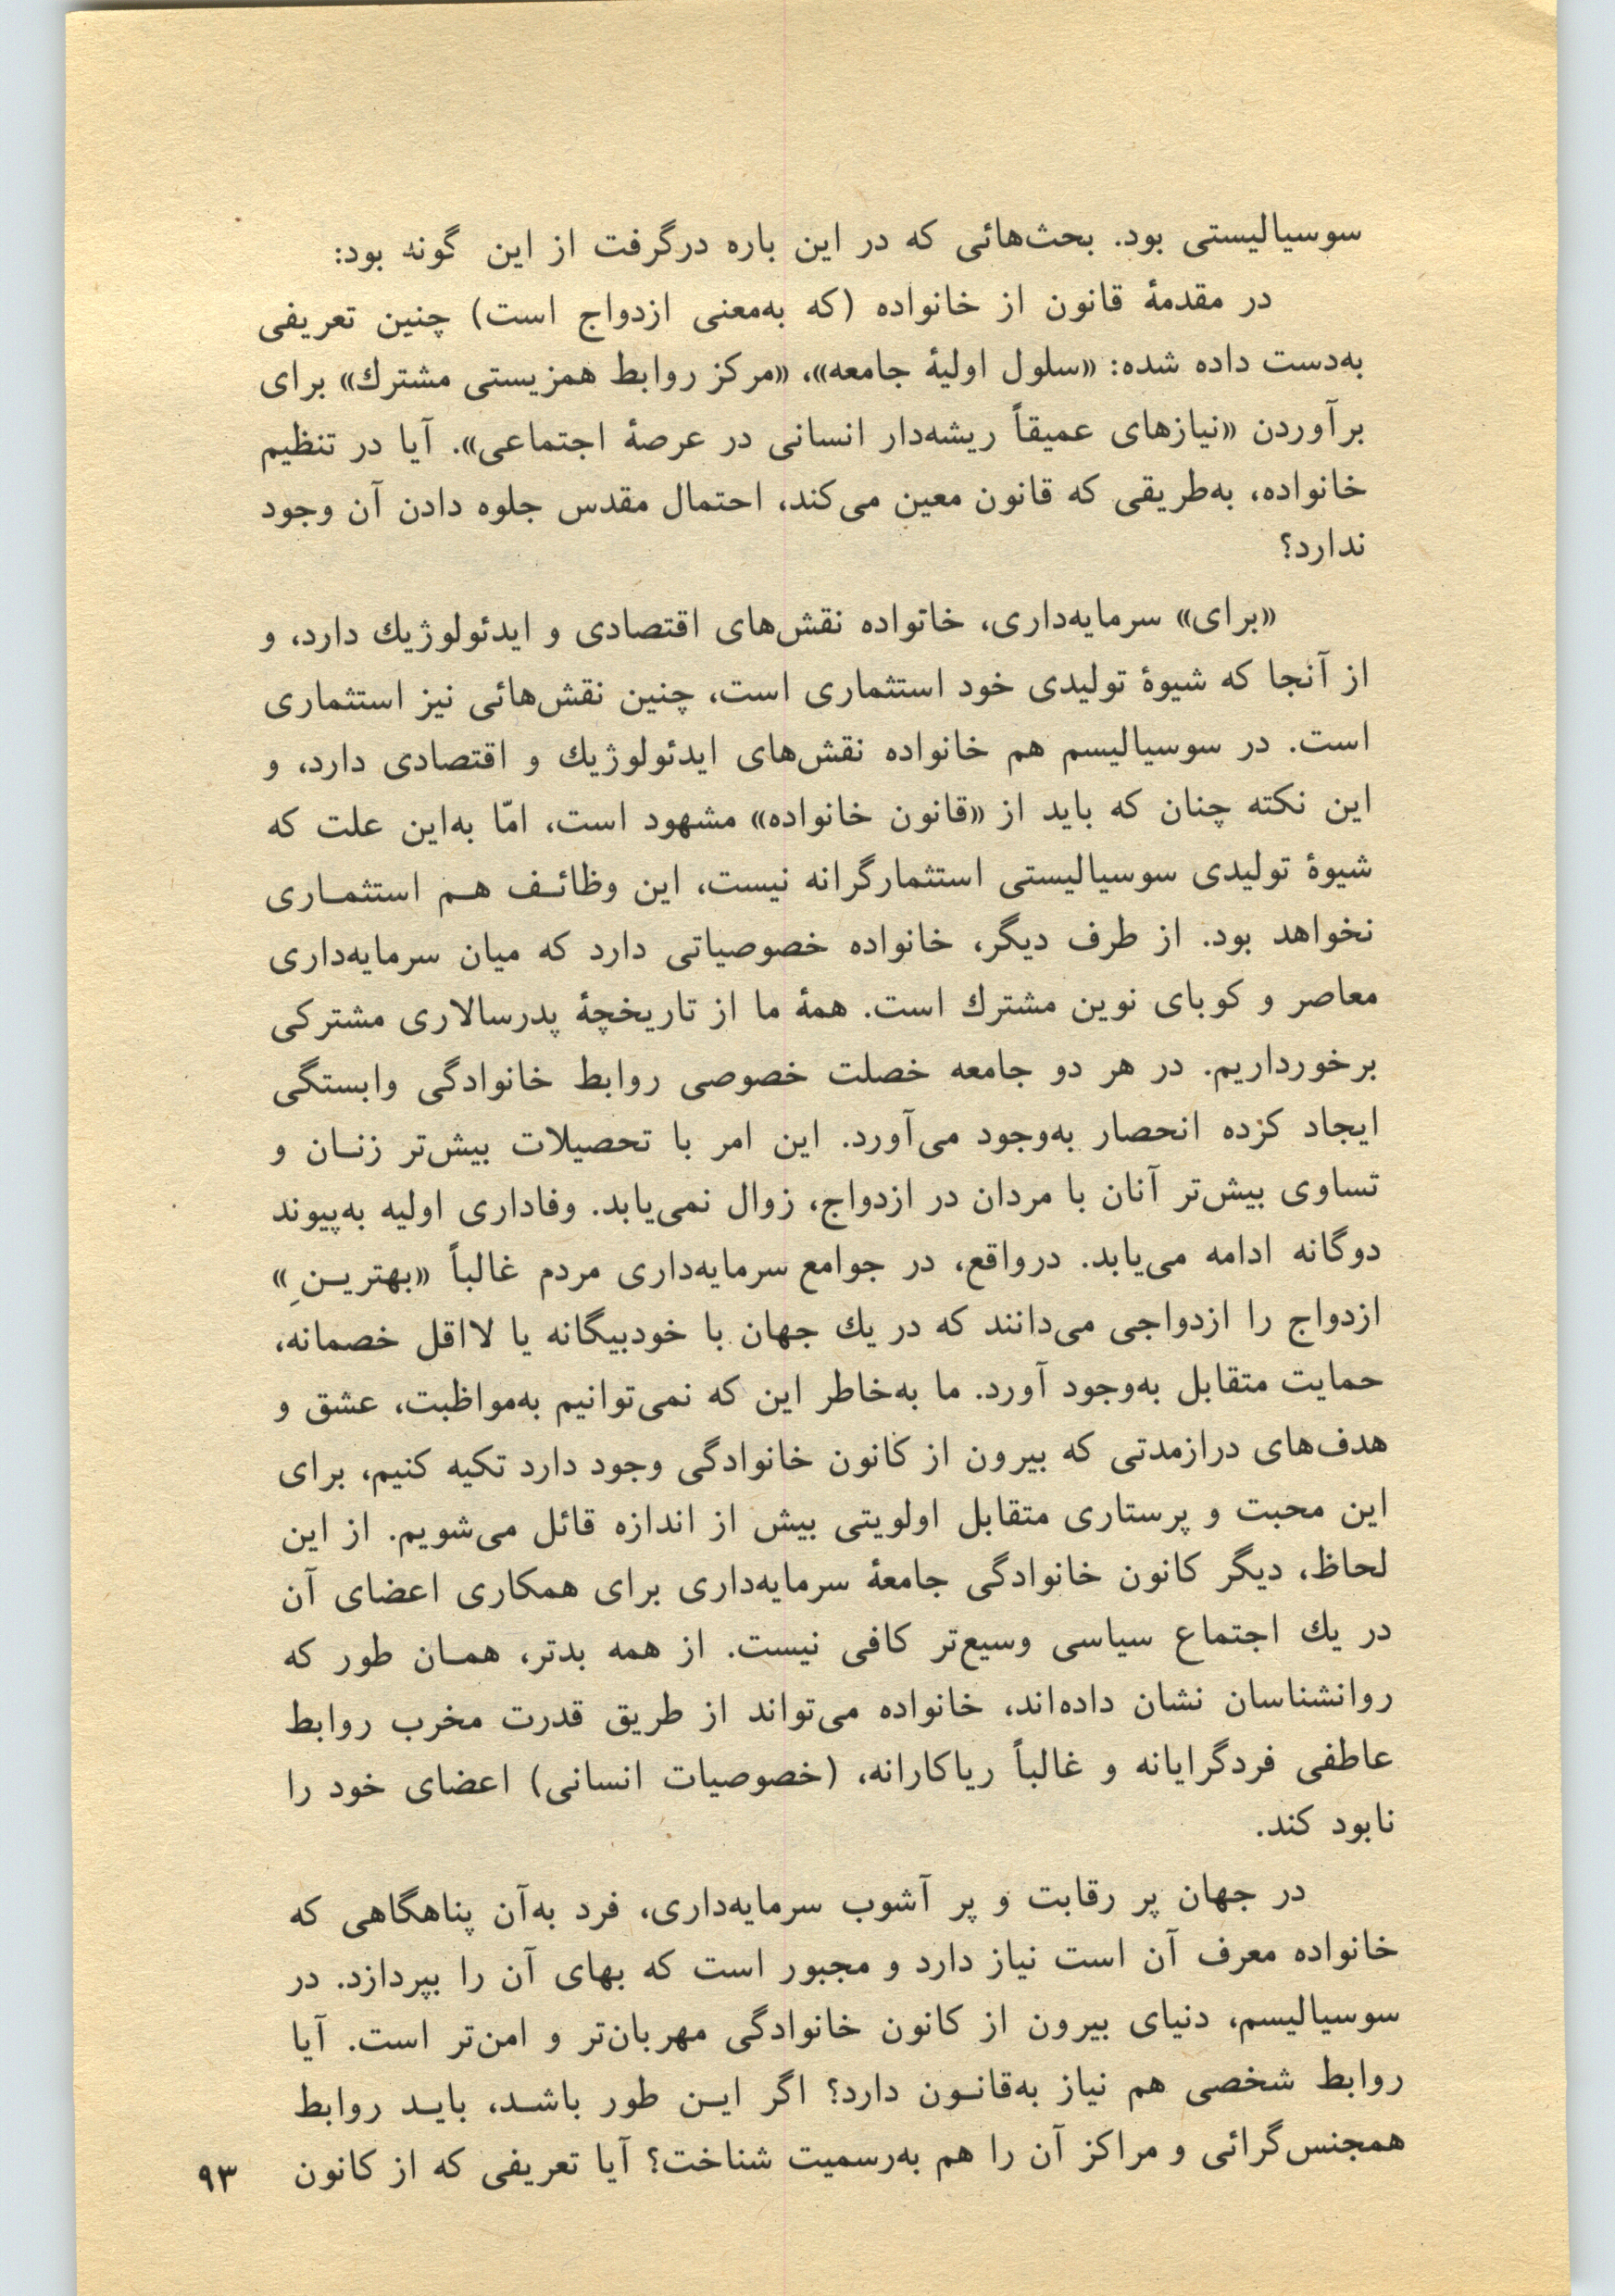 سوسیالیستی بود. بحث‌هائی که در این باره درگرفت از این گونه بود:
در مقدمهٔ قانون از خانواده (که به‌معنی ازدواج است) چنین تعریفی
به‌دست داده شده: «سلول اولیهٔ جامعه»، «مرکز روابط همزیستی مشترك» برای
برآوردن «نیازهای عمیقاً ریشه‌دار انسانی در عرصهٔ اجتماعی». آیا در تنظیم
خانواده، به‌طریقی که قانون معین می‌کند، احتمال مقدس جلوه دادن آن وجود
ندارد؟
«برای» سرمایه‌داری، خاتواده نقش‌های اقتصادی و ایدئولوژیك دارد، و
از آنجا که شیوهٔ تولیدی خود استثماری است، چنین نقش‌هائی نیز استثماری
است. در سوسیالیسم هم خانواده نقش‌های ایدئولوژیك و اقتصادی دارد، و
این نکته چنان که باید از «قانون خانواده» مشهود است، امّا به‌این علت که
شیوهٔ تولیدی سوسیالیستی استثمارگرانه نیست، این وظائـف هـم استثمـاری
نخواهد بود. از طرف دیگر، خانواده خصوصیاتی دارد که میان سرمایه‌داری
معاصر و کوبای نوین مشترك است. همهٔ ما از تاریخچهٔ پدرسالاری مشترکی
برخورداریم. در هر دو جامعه خصلت خصوصی روابط خانوادگی وابستگی
ایجاد کزده انحصار به‌وجود می‌آورد. این امر با تحصیلات بیش‌تر زنـان و
تساوی بیش‌تر آنان با مردان در ازدواج، زوال نمی‌یابد. وفاداری اولیه به‌پیوند
دوگانه ادامه می‌یابد. درواقع، در جوامع سرمایه‌داری مردم غالباً «بهتریـنِ»
ازدواج را ازدواجی می‌دانند که در یك جهان با خودبیگانه یا لااقل خصمانه،
حمایت متقابل به‌وجود آورد. ما به‌خاطر این که نمی‌توانیم به‌مواظبت، عشق و
هدف‌های درازمدتی که بیرون از کانون خانوادگی وجود دارد تکیه کنیم، برای
این محبت و پرستاری متقابل اولویتی بیش از اندازه قائل می‌شویم. از این
لحاظ، دیگر کانون خانوادگی جامعهٔ سرمایه‌داری برای همکاری اعضای آن
در یك اجتماع سیاسی وسیع‌تر کافی نیست. از همه بدتر، همـان طور که
روانشناسان نشان داده‌اند، خانواده می‌تواند از طریق قدرت مخرب روابط
عاطفی فردگرایانه و غالباً ریاکارانه، (خصوصیات انسانی) اعضای خود را
نابود کند.
در جهان پر رقابت و پر آشوب سرمایه‌داری، فرد به‌آن پناهگاهی که
خانواده معرف آن است نیاز دارد و مجبور است که بهای آن را بپردازد. در
سوسیالیسم، دنیای بیرون از کانون خانوادگی مهربان‌تر و امن‌تر است. آیا
روابط شخصی هم نیاز به‌قانـون دارد؟ اگر ایـن طور باشـد، بایـد روابط
همجنس‌گرائی و مراکز آن را هم به‌رسمیت شناخت؟ آیا تعریفی که از کانون
۹۳